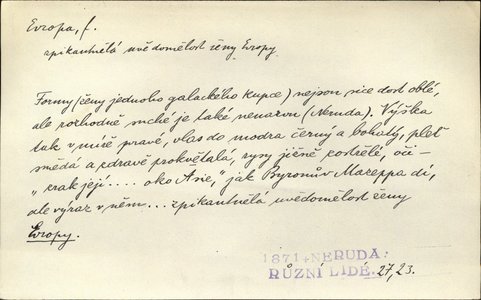 Evropa, f.
zpikantnělá uvědomělost ženy Evropy
Formy (ženy jednoho galackého kupce) nejsou sice dost oblé,
ale rozhodně suché je také nenazvu (Neruda). Výška
tak v míře pravé, vlas do modra černý a bohatý, pleť
smědá a zdravě prokvětalá, rysy jižně rostrélé, oči –
„zrak její ..... oko Asie," jak Byronův Mazeppa dí,
ale výraz v něm ... zpikantnělá uvědomělost ženy
Evropy.
1871, NERUDA:
RŮZNÍ LIDÉ. 27,23.